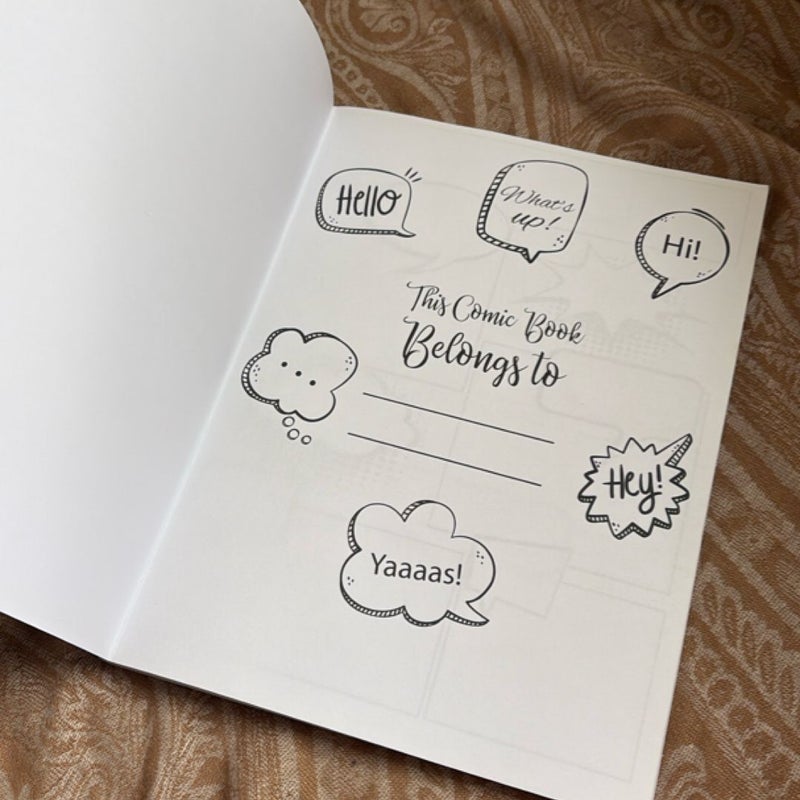 Hello
What's
up!
Hi!
This Comic Book
Belongs to
...
Hey!
Yaaaas!